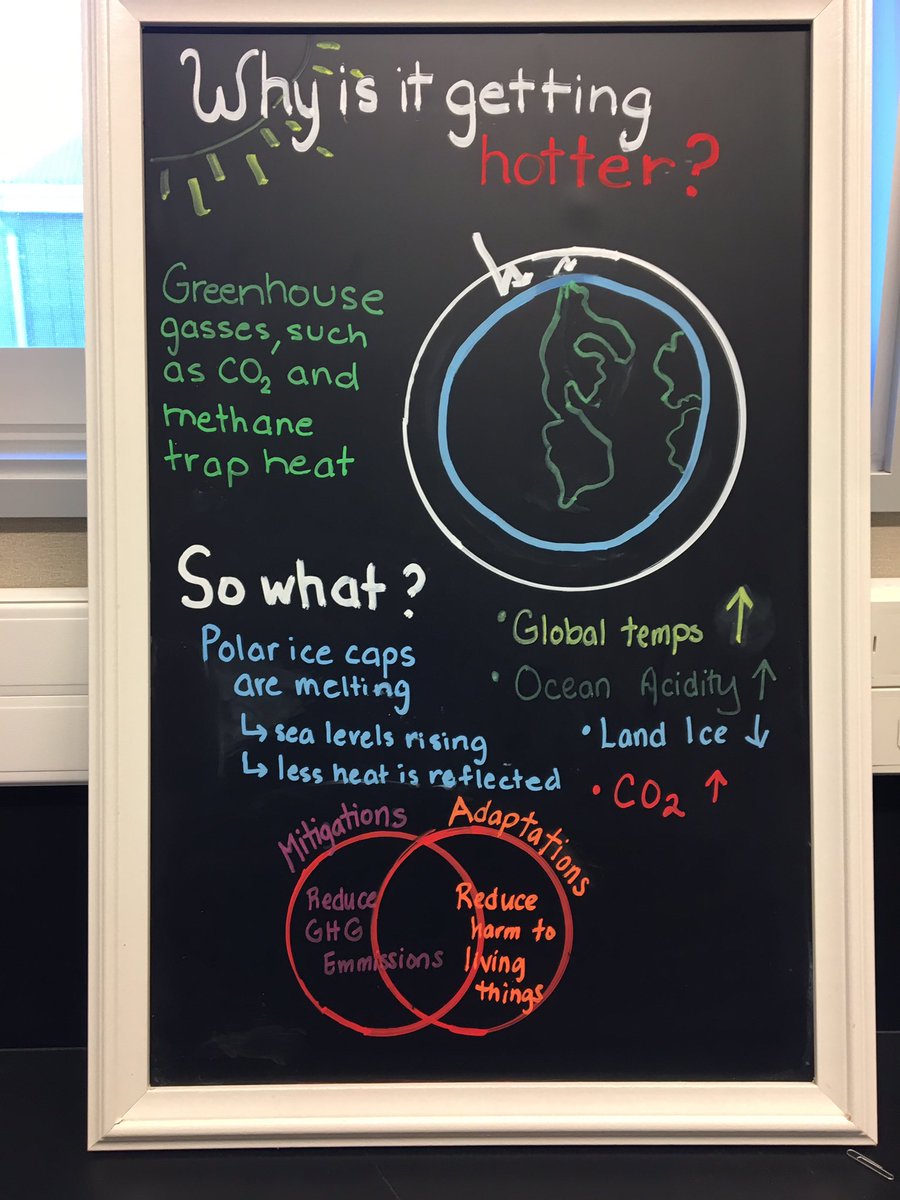 Why is it getting
hotter?
Greenhouse
gasses, such
as CO₂ and
methane
trap heat
So what?
Polar ice caps
are melting
↳ sea levels rising
↳ less heat is reflected
• Global temps ↑
• Ocean Acidity ↑
• Land Ice ↓
• CO₂ ↑
Mitigations
Reduce
GHG
Emmissions
Adaptations
Reduce
harm to
living
things